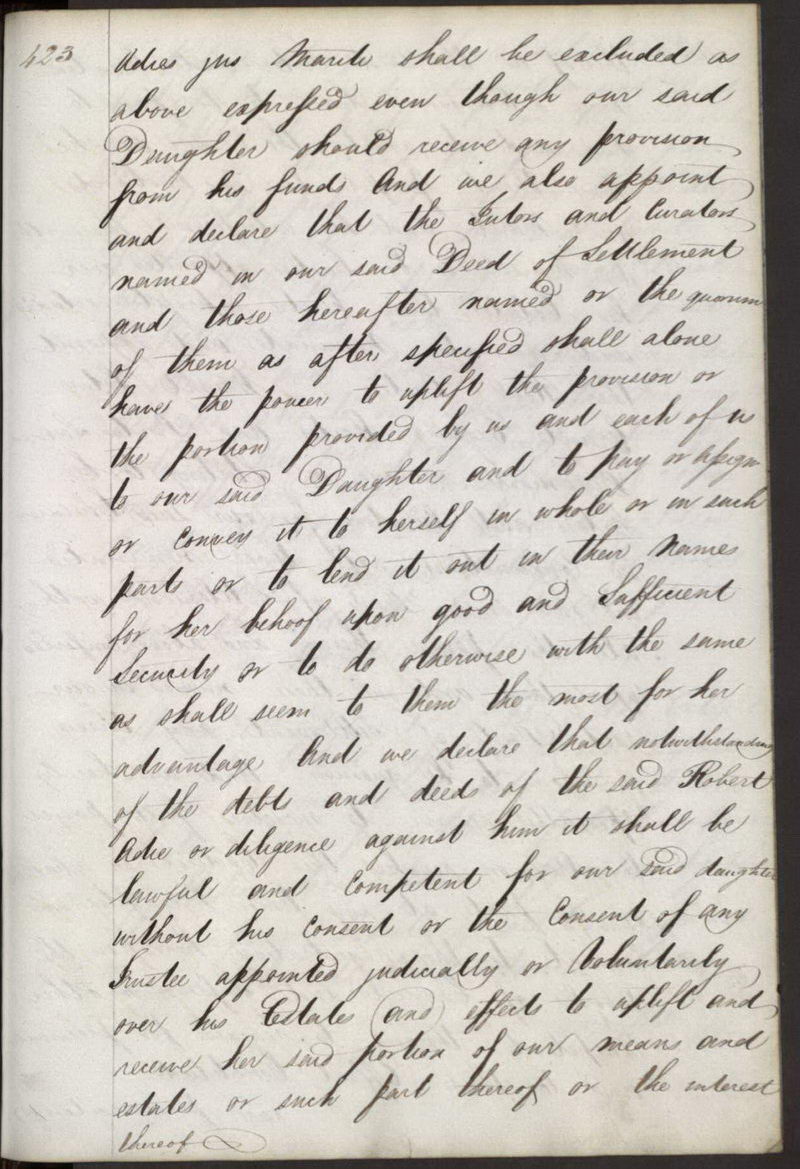 423
Adies jus Mariti shall be excluded as
above expressed even though our said
Daughter should receive any provision
from his funds And we also appoint
and declare that the Tutors and Curators
named in our said Deed of Settlement
and those hereafter named or the quorum
of them as after specified shall alone
have the power to uplift the provision or
the portion provided by us and each of us
to our said Daughter and to pay or assign
or convey it to herself in whole or in such
parts or to lend it out in their names
for her behoof upon good and Sufficient
Security or to do otherwise with the same
as shall seem to them the most for her
advantage And we declare that notwithstanding
of the debts and deeds of the said Robert
Adie or diligence against him it shall be
lawful and Competent for our said daughter
without his Consent or the Consent of any
Trustee appointed judicially or Voluntarily
over his Estates (and) effects to uplift and
receive her said portion of our means and
estates or such part thereof or the interest
thereof